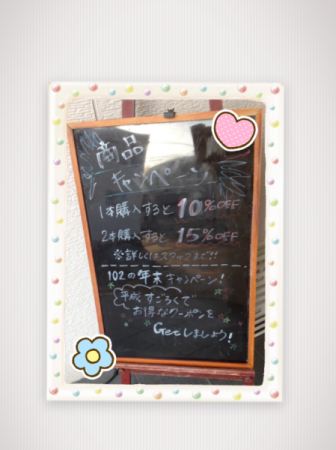 商品
キャンペーン
1本購入すると10%OFF
2本購入すると15%OFF
※詳しくはスタッフまで!!
102の年末キャンペーン!
平成すごろくで
お得なクーポンを
Getしましょう!